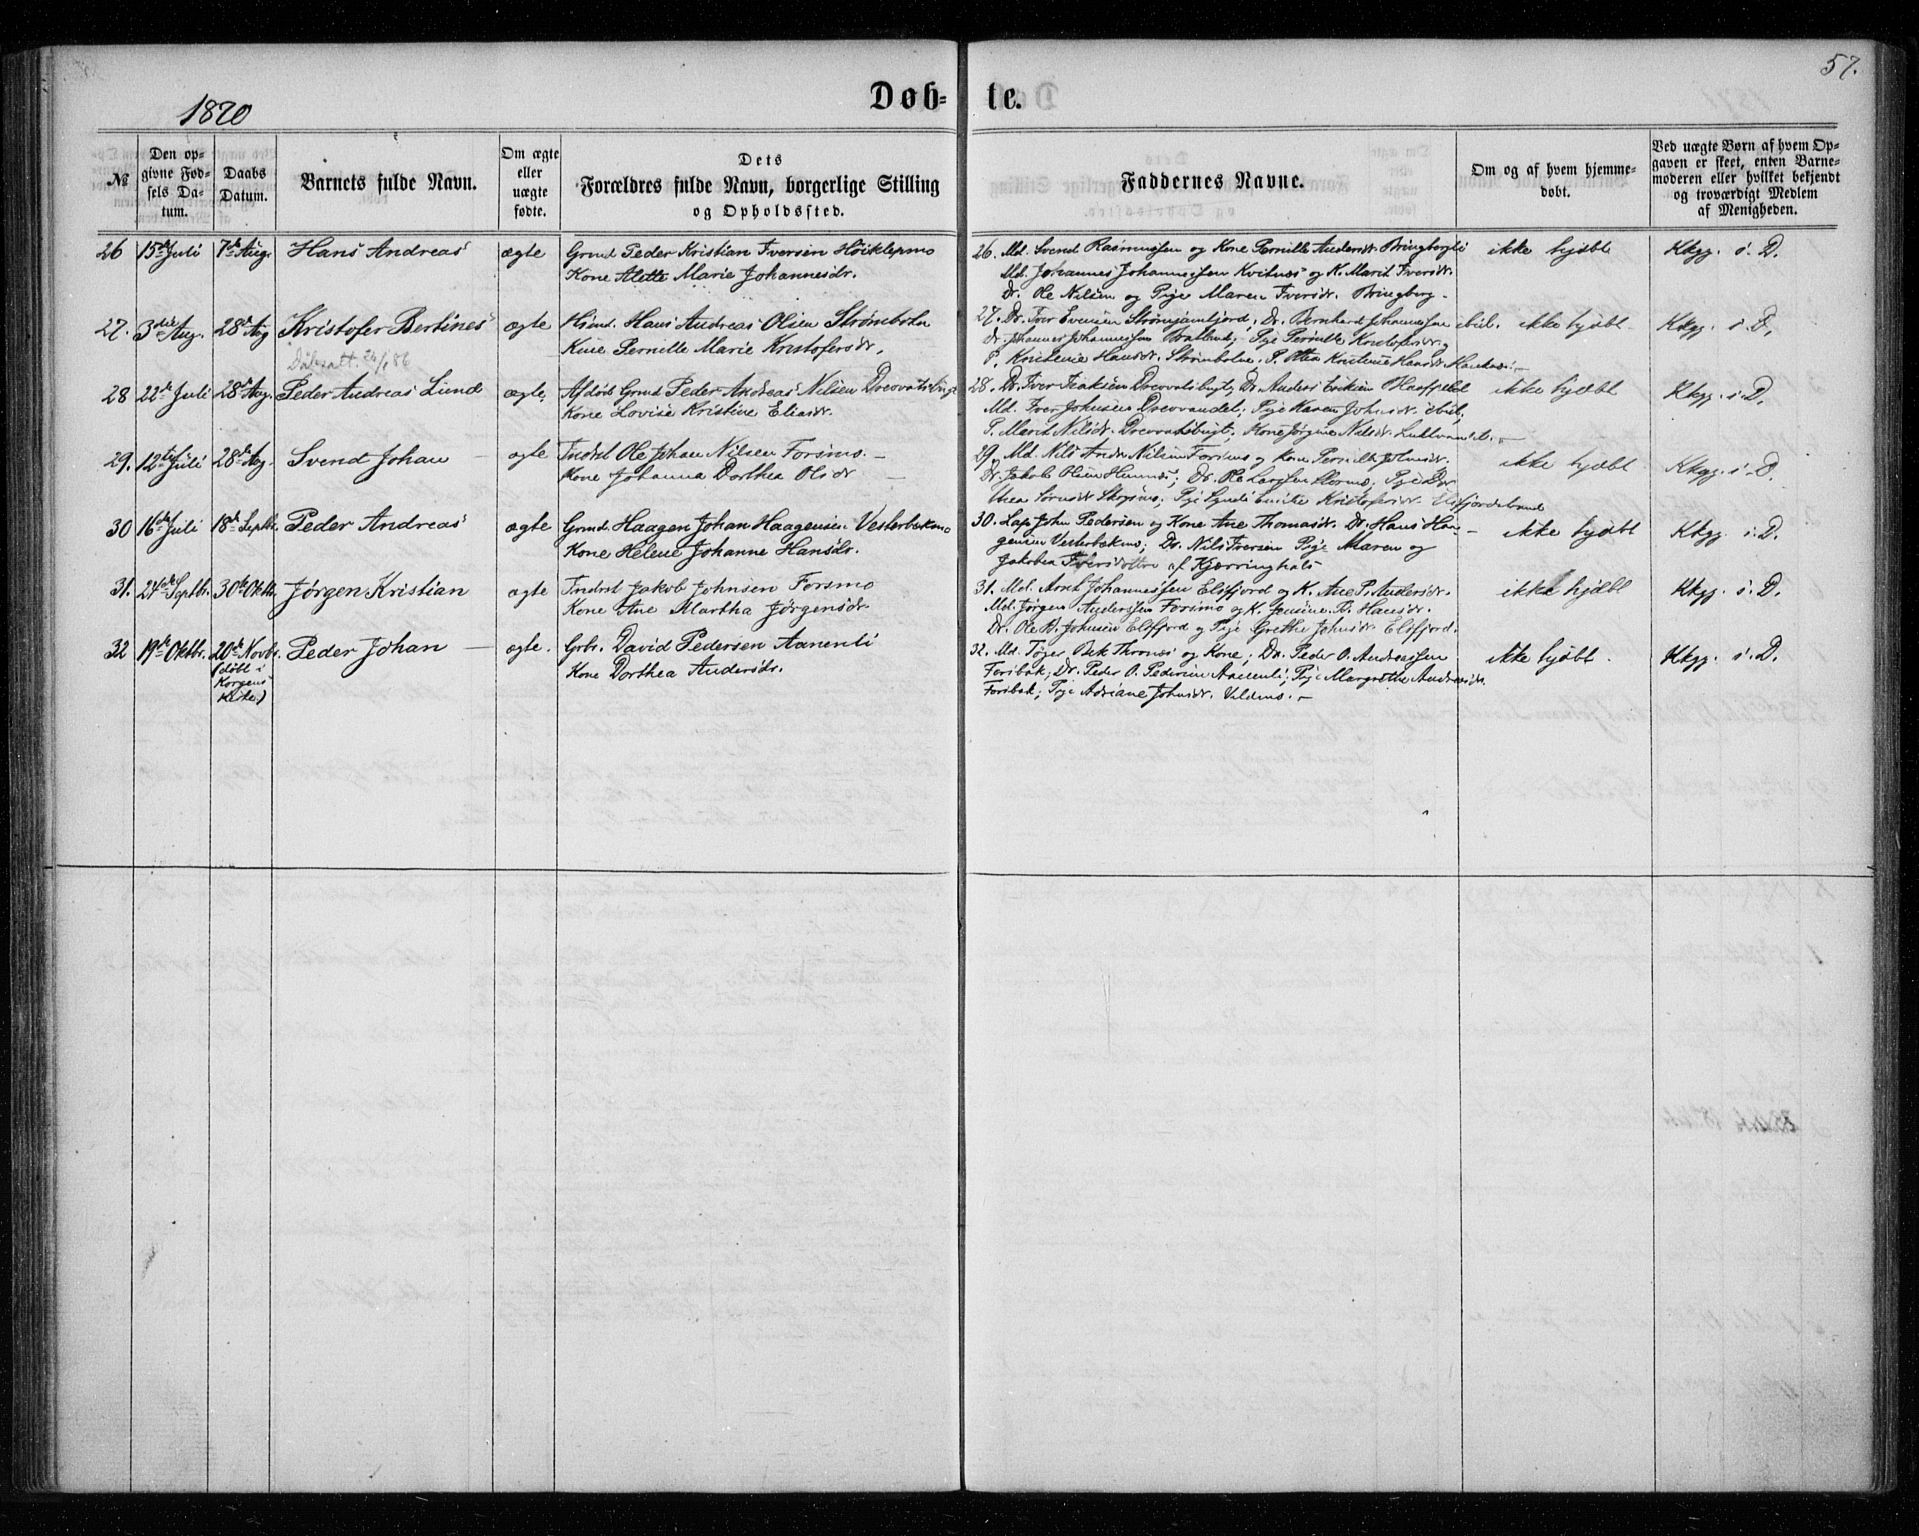 57.
1870
Døb=
te.
№
Den op=
givne Fød=
sels Da=
tum.
Daabs
Datum.
Barnets fulde Navn.
Om ægte
eller
uægte
fødte.
Dets
Forældres fulde Navn, borgerlige Stilling
og Opholdssted.
Faddernes Navne.
Om og af hvem hjemme=
døbt.
Ved uægte Børn af hvem Op=
gaven er skeet, enten Barne=
moderen eller hvilket bekjendt
og troværdigt Medlem
af Menigheden.
26 15de Juli 7de Aug. Hans Andreas ægte Grmd Peder Kristian Iversen Höiklepmo
Kone Alette Marie Johannesdr.
26. Md. Svend Rasmussen og Kone Pernille Andersdr. Bringberglie
Md. Johannes Johannessen Kvitnes og K. Marit Iversdr.
Dr. Ole Nilsen og Pige Maren Iversdr. Bringberg.
ikke hjdbt Kkgg. i. D.
27. 3die Aug. 28de Aug Kristofer Bertines ægte Hsmd. Hans Andreas Olsen Strømboln
Kone Pernille Marie Kristofersdr.
Dåbsatt. 24/1 86
27. Dr. Iver Evensen; Dr. Bernhard Johannessen ibid.
Dr. Johannes Johannessen Bratland; Pige Pernille Kristofersdr. og
P. Kristense Hansdr. Strømbolne. P. Kristine Hansdr.
ikke hjdbt Kkgg. i D.
28 22de Juli 28de Aug. Peder Andreas Lund ægte. Afdøde Grmd Peder Andreas Nilsen Drevvatsbugt
Kone Lovise Kristine Eliasdr.
28. Dr. Iver Isaksen Drevvatsbugt; Dr. Anders Eriksen
Md. Iver Johnsen Drevvandet; Pige Karen Johnsdr. ibid.
P. Marit Nilsdr. Drevvatsbugt; Kone Jørgine Nilsdr. Luktvandet.
ikke hjdbt Kkgg. i. D.
29. 12te Juli 28de Aug. Svend Johan ægte Indrst Ole Johan Nilsen Forsmo.
Kone Johanna Dorthea Olsdr
29. Md. Nils Andr. Nilsen Forsmo og Kone Pernille Johnsdr.
Dr. Jakob Olsen Hemnes; Dr. Ole Larssen Stormo; Pige Dor
thea Pige Kristofersdr. Elsfjordstrand
ikke hjdbt Kkgg. i. D.
30 16de Juli 18de Septbr. Peder Andreas ægte Grmd. Haagen Johan Haagensen Vesterbækmo
Kone Helene Johanne Hansdr.
30. Lap John Pedersen og Kone Ane Thomasdr. Dr. Hans Haa=
gensen Vesterbækmo; Dr. Nils Iversen Pige Maren og
Jakobea Iversdøttre af Kjerringhals
ikke hjdbt Kkgg. i. D.
31. 24de Septbr. 30te Oktbr. Jørgen Kristian ægte Indrst Jakob Johnsen Forsmo
Kone Ane Martha Jørgensdr.
31. Md. Arnt Johannessen Elsfjord og K. Ane P. Andersdr.
Md. Jørgen Anderssen Forsmo og K. Jensine B. Hansdr.
Dr. Ole B. Johnsen Elsfjord og Pige Grethe Johnsdr. Elsfjord.
ikke hjdbt Kkgg. i. D.
32 19de Oktbr. 20de Novbr. Peder Johan ægte. Grbr. David Pedersen Aanenli
(døbt i
Korgens
Kirke)
Kone Dorthea Andersdr.
32. Md. Tøger Bek Thronæs og Kone; Dr. Peder O. Andreassen
Forsbak; Dr. Peder O. Pedersen Aanenli; Pige Margrethe Andreasdr.
Forsbak; Pige Adriane Johnsdr. Valdmo.
ikke hjdbt. Kkgg. i. D.